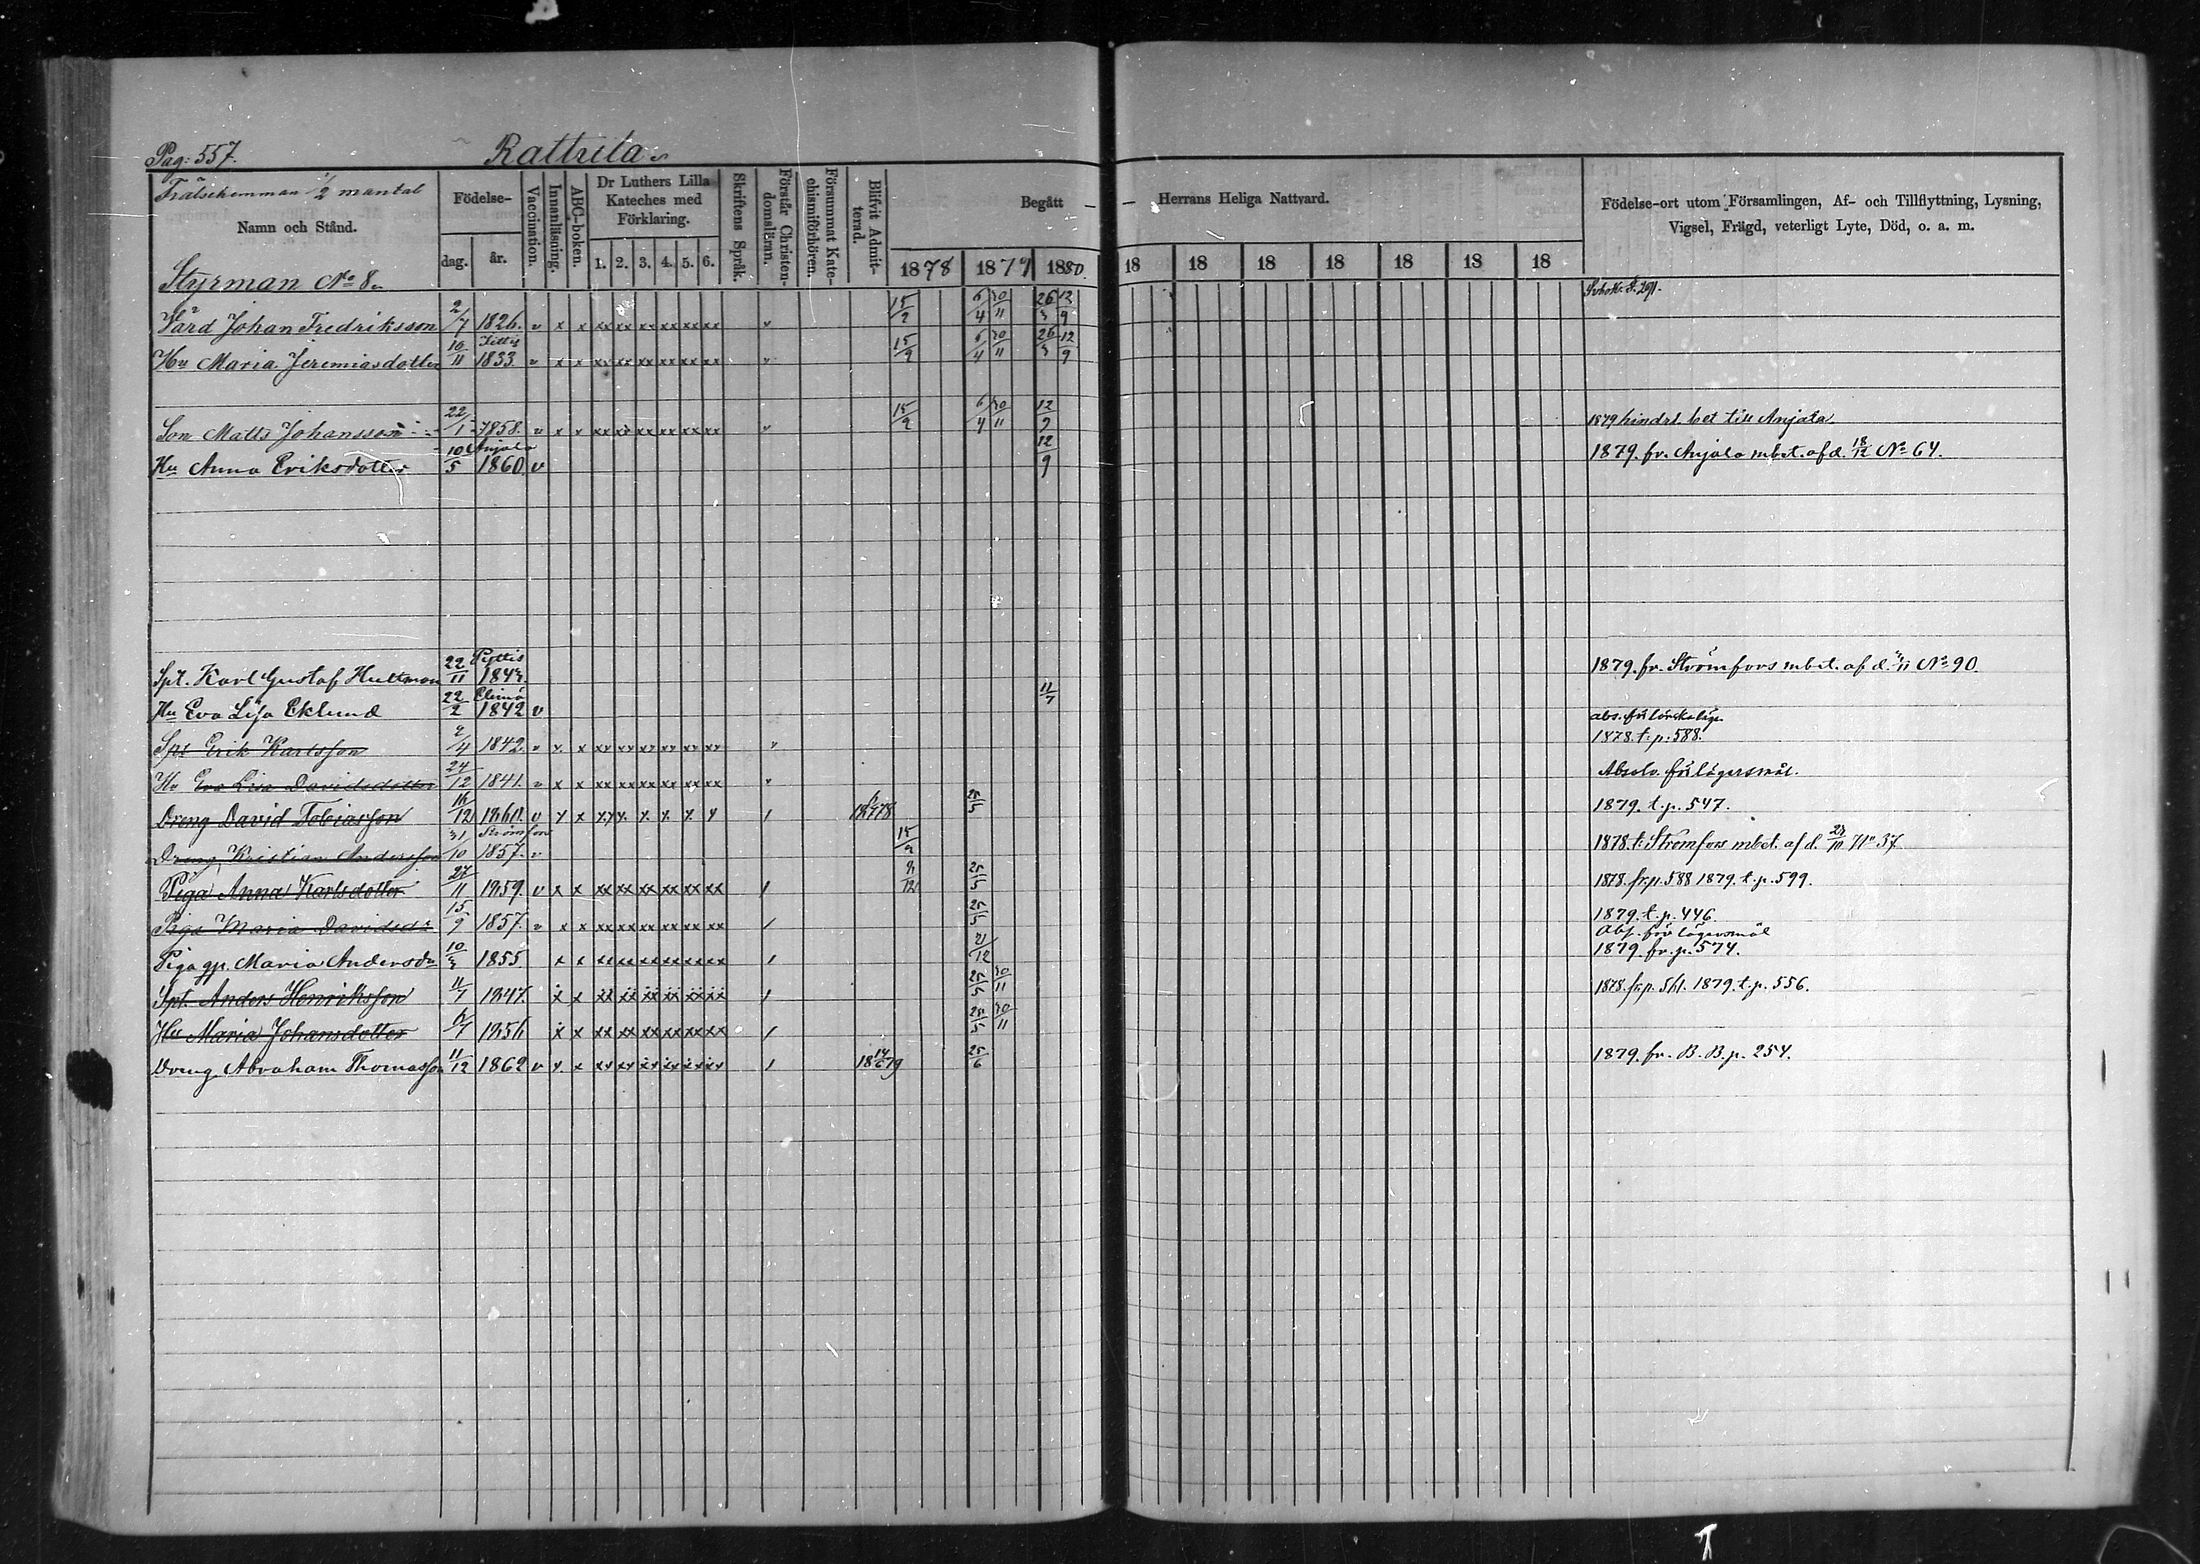 Pag: 557. Rattula
Frälsehemman 1/2 mantal
Namn och Stånd.
Födelse-
dag. år.
Vaccination.
Innanläsning.
ABC-boken.
Dr Luthers Lilla
Kateches med
Förklaring.
1. 2. 3. 4. 5. 6.
Skriftens Språk.
Förstår Christendomsläran.
Försummat Katechismiförhören.
Blifvit Admitterad.
Begått Herrans Heliga Nattvard.
1878 1879 1880. 18 18 18 18 18 18 18
Födelse-ort utom Församlingen, Af- och Tillflyttning, Lysning,
Vigsel, Frägd, veterligt Lyte, Död, o. a. m.
Styrman No 8
Värd Johan Fredriksson 2/7 1826. v x x xx xx xx xx xx xx 15/9 6/4 30/11 26/3 12/9
Hu Maria Jeremiasdotter 16/11 1833. v x x xx xx xx xx xx xx 15/9 6/4 30/11 26/3 12/9
Son Matts Johansson 22/1 1858. v x x xx xx xx xx xx xx 15/9 6/4 30/11 12/9 1879 hindrsl. bet till Anjala
Hu Anna Eriksdotter 10/5 Anjala 1860. v 12/9 1879. fr. Anjala mbet. af d. 18/12 No 64.
Spt. Karl Gustaf Hultman 22/11 Pyttis 1842. 1879. fr. Strömfors mbet. af d. No 90.
Hu Eva Lisa Eklund 22/2 Elimä 1842 v 11/7
Spt Erik Karlsson 1842. v x x xx xx xx xx xx xx 1878. t. p. 588.
Hu Eva Lisa Davidsdotter 24/12 1841. v x x xx xx xx xx xx xx Absolv. för lägersmål.
Dreng David Tobiasson 16/12 1860. v 25/5 1879. t. p. 547.
Dreng Kristian Andersson 31/10 Strömfors 1857. v 15/9 1878. t. Strömfors mbet. af d. No 37
Piga Anna Karlsdotter 27/11 1859. v x x xx xx xx xx xx xx 25/5 1878. fr. p. 588 1879. t. p. 599.
Piga Maria Davidsdr 15/9 1857. v x x xx xx xx xx xx xx 25/5 1879. t. p. 446.
Abs. för lägersmål
Piga gp. Maria Andersdr 10/3 1855. x x xx xx xx xx xx xx 21/12 1879. fr. p. 574.
Spt. Anders Henriksson 11/7 1847. x x xx xx xx xx xx xx 25/5 30/11 1878. fr. p. 561. 1879. t. p. 556.
Hu Maria Johansdotter 6/7 1856 x x xx xx xx xx xx xx 25/5 30/11
Dreng Abraham Thomasson 11/12 1862 v x x xx xx xx xx xx xx 18 14/6 79 25/6 1879. fr. B. B. p. 254.